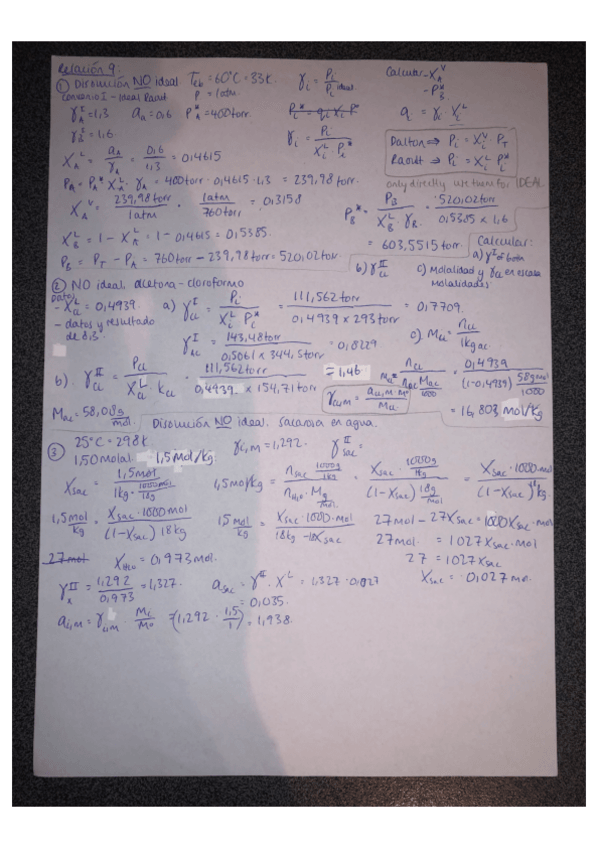 Relación 9:
① Disolución NO ideal Teb = 60°C = 33K. γi = Pi / Pi ideal Calcular - X_A^V
Convenio I - Ideal Raoult P = 1atm. - P_B*
γ_A^I = 1,3 a_A = 0,6 P_A* = 400torr.
γ_B^I = 1,6. γi = Pi / X_i^L P_i* ai = γi · X_i^L
X_A^L = a_A / γ_A = 0,6 / 1,3 = 0,4615 Dalton ⇒ Pi = X_i^V · P_T
Raoult ⇒ Pi = X_i^L P_i*
P_A = P_A* X_A^L · γ_A = 400torr · 0,4615 · 1,3 = 239,98 torr. only directly use them for IDEAL
X_A^V = 239,98 torr / 1atm · 1atm / 760torr = 0,3158 P_B* = P_B / X_B^L · γ_B = 520,02torr / 0,5385 x 1,6
X_B^L = 1 - X_A^L = 1 - 0,4615 = 0,5385. = 603,5515 torr.
P_B = P_T - P_A = 760torr - 239,98torr = 520,02torr
Calcular:
a) γ^I of both
b) γ_cl^II c) Molalidad y γ_cl en escala molalidades
② NO ideal acetona - cloroformo
Datos
- X_cl^L = 0,4939. a) γ_cl^I = Pi / X_i^L P_i* = 111,562torr / 0,4939 x 293torr = 0,7709.
- datos y resultado de 8.3. γ_Ac^I = 143,48torr / 0,5061 x 344,5torr = 0,8229 c) M_cl = n_cl / 1kg ac
b). γ_cl^II = P_cl / X_cl^L · k_cl = 111,562torr / 0,4939 · x 154,71torr = 1,46 M_cl = n_cl / n_Ac M_ac / 1000 = 0,4939 / (1-0,4939) 58g/mol / 1000
γ_cl,m = a_cl,m · m° / M_cl = 16,803 mol/kg
M_ac = 58,08g/mol.
Disolución NO ideal. Sacarosa en agua.
③ 25°C = 298k γ_i,m = 1,292. γ_sac^II =
1,50 molal. → 1,5mol/kg.
X_sac = 1,5mol / 1kg · 1000mol / 18g 1,5mol/kg = n_sac 1000g/1kg / n_H2O · M_g/mol = X_sac · 1000g/1kg / (1-X_sac) 18g/mol = X_sac · 1000 mol / (1-X_sac) 18kg.
1,5mol/kg · X_sac · 1000mol / (1-X_sac) 18kg 15 mol/kg = X_sac · 1000 · mol / 18kg - 18X_sac 27mol - 27X_sac = 1000X_sac · mol
27mol. = 1027X_sac · mol
27mol X_H2O = 0,973mol. 27 = 1027X_sac
γ_A^II = 1,292 / 0,973 = 1,327. a_sac = γ^II · X^L = 1,327 · 0,027 X_sac = 0,027 mol.
= 0,035.
a_i,m = γ_i,m · Mi / M° = (1,292 · 1,5 / 1) = 1,938.